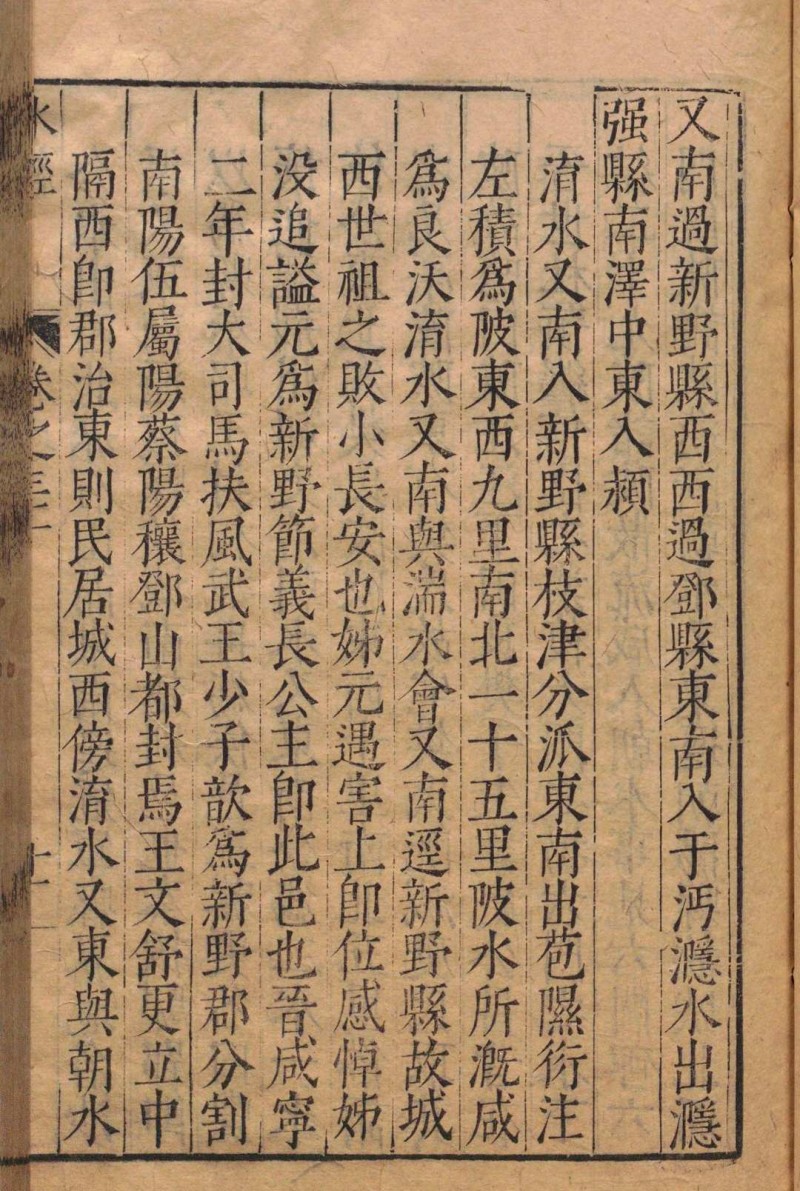 又南過新野縣西西過鄧縣東南入于沔濦水出濦
强縣南澤中東入潁
淯水又南入新野縣枝津分派東南出苞隰衍注
左積爲陂東西九里南北一十五里陂水所漑咸
爲良沃淯水又南與湍水會又南逕新野縣故城
西世祖之敗小長安也姊元遇害上卽位感悼姊
没追謚元爲新野節義長公主卽此邑也晉咸寧
二年封大司馬扶風武王少子歆爲新野郡分割
南陽伍屬陽蔡陽穰鄧山都封焉王文舒更立中
隔西卽郡治東則民居城西傍淯水又東與朝水
水經 卷之三十一 十一